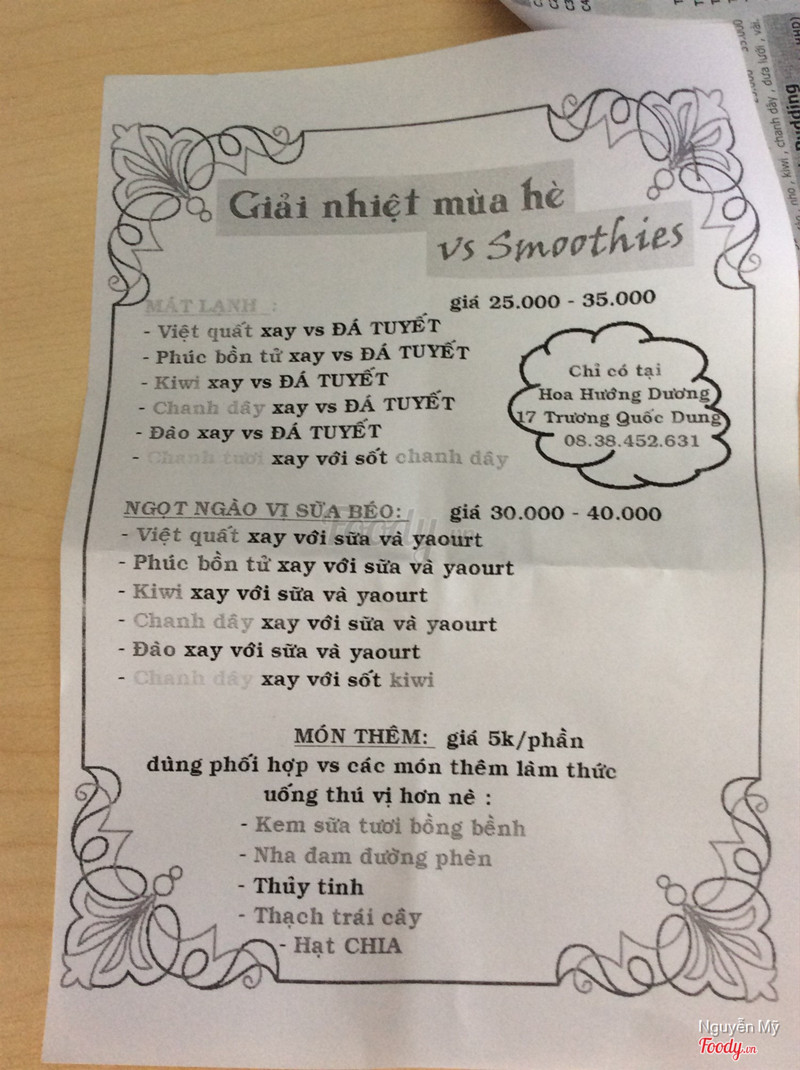 Giải nhiệt mùa hè
vs Smoothies
MÁT LẠNH : giá 25.000 - 35.000
- Việt quất xay vs ĐÁ TUYẾT
- Phúc bồn tử xay vs ĐÁ TUYẾT
- Kiwi xay vs ĐÁ TUYẾT
- Chanh dây xay vs ĐÁ TUYẾT
- Đào xay vs ĐÁ TUYẾT
- Chanh tươi xay với sốt chanh dây
Chỉ có tại
Hoa Hướng Dương
17 Trương Quốc Dung
08.38.452.631
NGỌT NGÀO VỊ SỮA BÉO: giá 30.000 - 40.000
- Việt quất xay với sữa và yaourt
- Phúc bồn tử xay với sữa và yaourt
- Kiwi xay với sữa và yaourt
- Chanh dây xay với sữa và yaourt
- Đào xay với sữa và yaourt
- Chanh dây xay với sốt kiwi
MÓN THÊM: giá 5k/phần
dùng phối hợp vs các món thêm làm thức
uống thú vị hơn nè :
- Kem sữa tươi bồng bềnh
- Nha đam đường phèn
- Thủy tinh
- Thạch trái cây
- Hạt CHIA
nho , kiwi , chanh dây , dưa lưới , vải.
Pudding
Foody.vn
Nguyễn Mỹ
Foody.vn